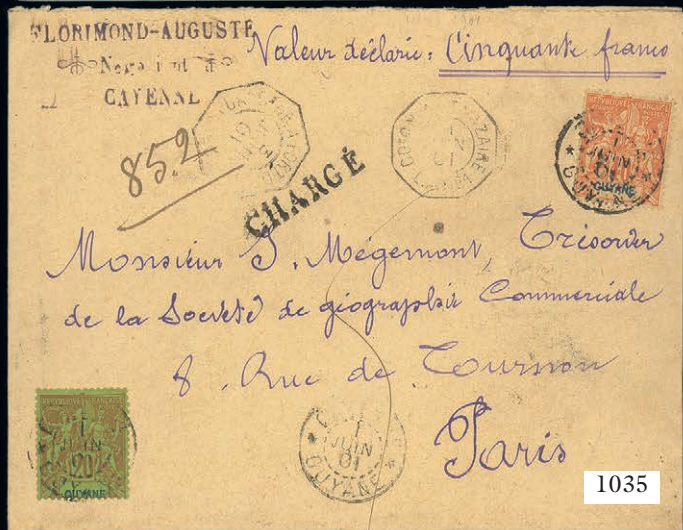 FLORIMOND-AUGUSTE
Negociant
CAYENNE
Valeur déclarée : Cinquante francs
852
CHARGÉ
1
JUIN
01
GUYANE
Monsieur J. Mégemont, Trésorier
de la Société de géographie Commerciale
8, Rue de Tournon
Paris
REPUBLIQUE FRANÇAISE
20
GUYANE
1
JUIN
01
GUYANE
1035